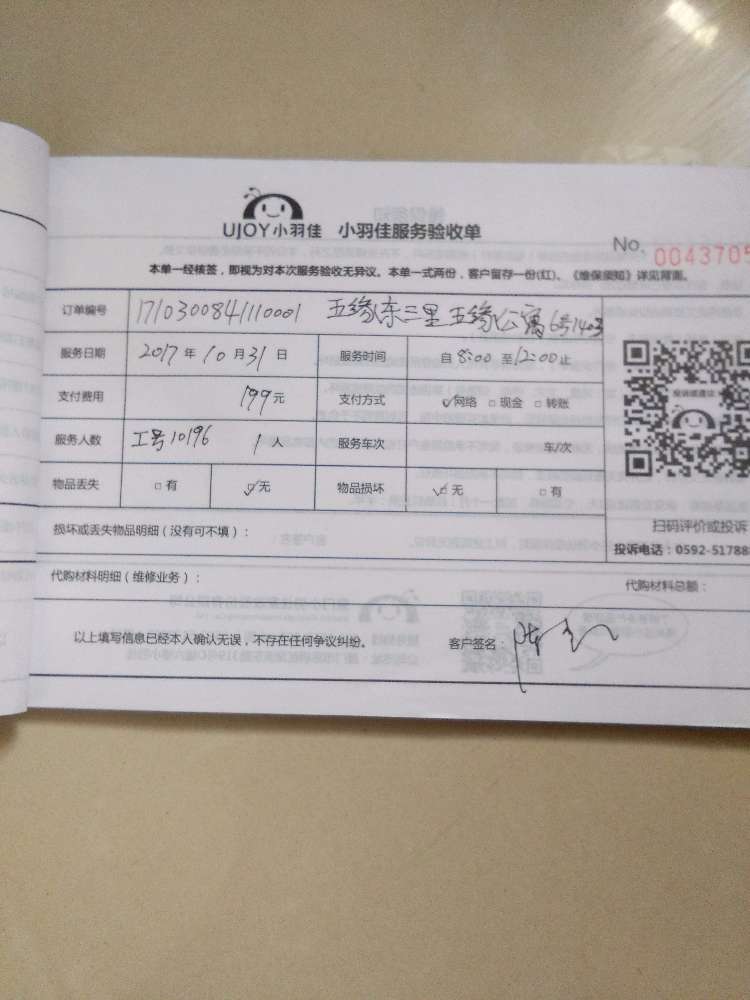 UJOY小羽佳 小羽佳服务验收单
No. 0043705
本单一经核签，即视为对本次服务验收无异议。本单一式两份，客户留存一份(红)。《维保须知》详见背面。
订单编号 1710300841110001 五缘东三里五缘公寓6号1403
服务日期 2017年10月31日 服务时间 自8:00至12:00止
支付费用 199元 支付方式 ☑网络 □现金 □转账
投诉或建议
服务人数 工号10196 1人 服务车次 车/次
物品丢失 □有 ☑无 物品损坏 ☑无 □有
损坏或丢失物品明细（没有可不填）：
扫码评价或投诉
投诉电话：0592-51788
代购材料明细（维修业务）： 代购材料总额：
以上填写信息已经本人确认无误，不存在任何争议纠纷。 客户签名：